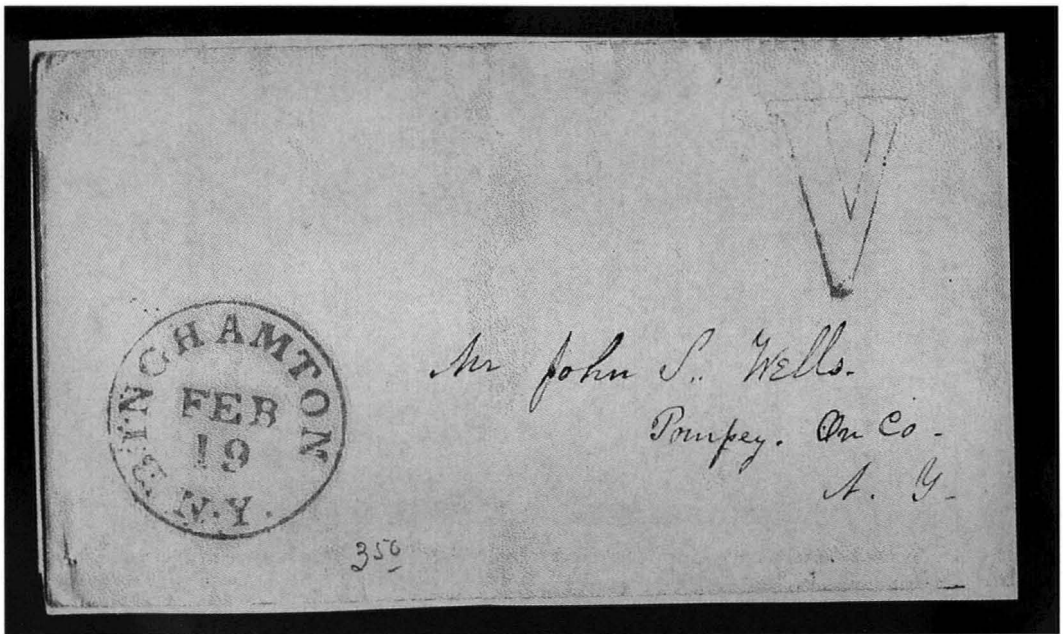 V
BINGHAMTON
FEB
19
N.Y.
Mr John S. Wells.
Pompey. On Co.
N. Y.
350